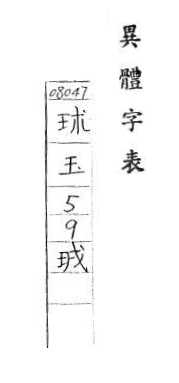 異體字表
08047
玉
5
9